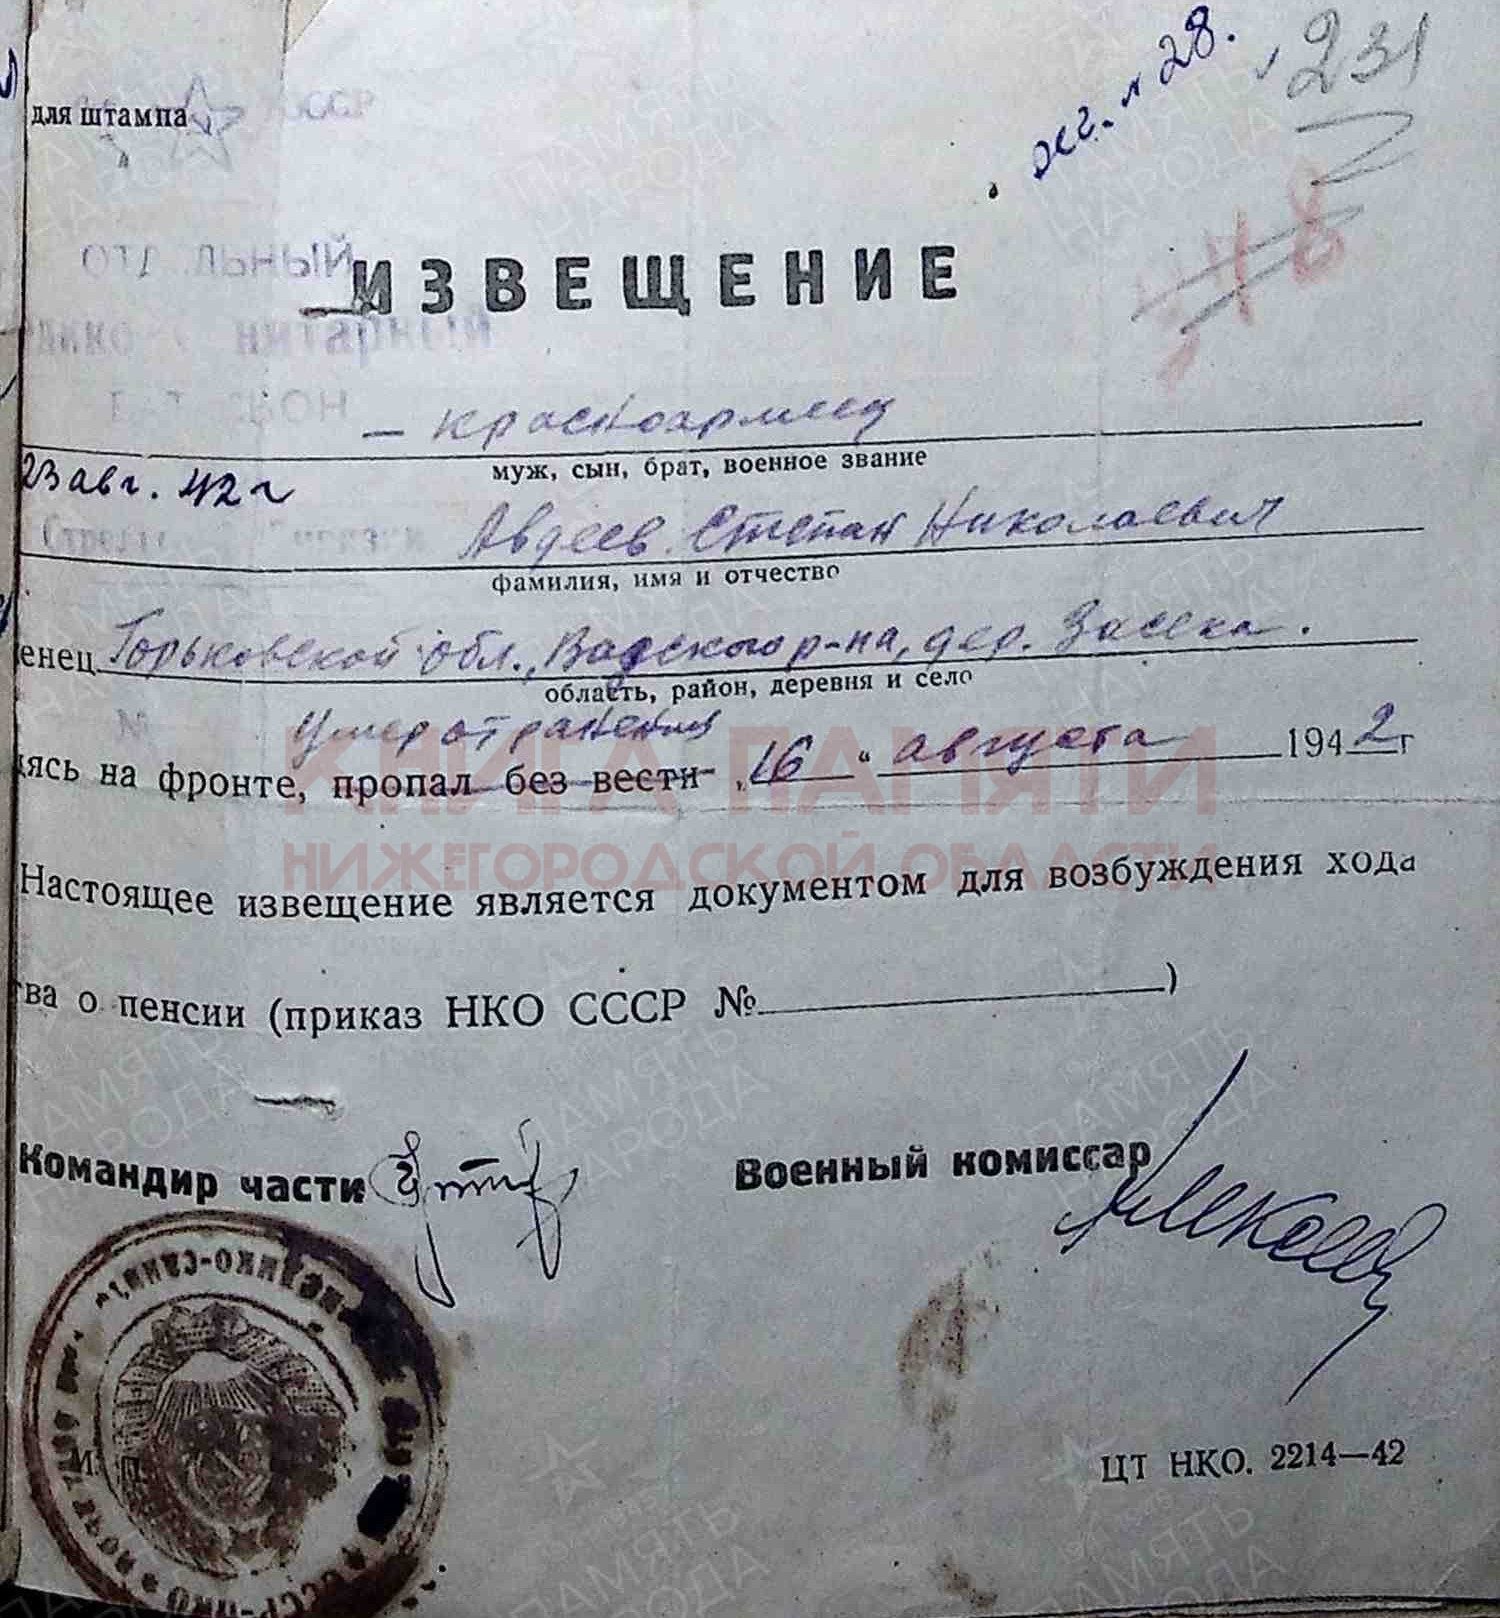 л 28.
231
48
для штампа
СССР
ИЗВЕЩЕНИЕ
— красноармеец
муж, сын, брат, военное звание
23 авг. 42 г
Авдеев Степан Николаевич
фамилия, имя и отчество
енец Горьковской обл., Вадского р-на, дер. Засека.
область, район, деревня и село
№ Умер от ранения
ясь на фронте, пропал без вести „16“ августа 1942 г
КНИГА ПАМЯТИ
НИЖЕГОРОДСКОЙ ОБЛАСТИ
Настоящее извещение является документом для возбуждения хода
ва о пенсии (приказ НКО СССР № )
Командир части
Военный комиссар
М. П.
ЦТ НКО. 2214—42
ПАМЯТЬ НАРОДА